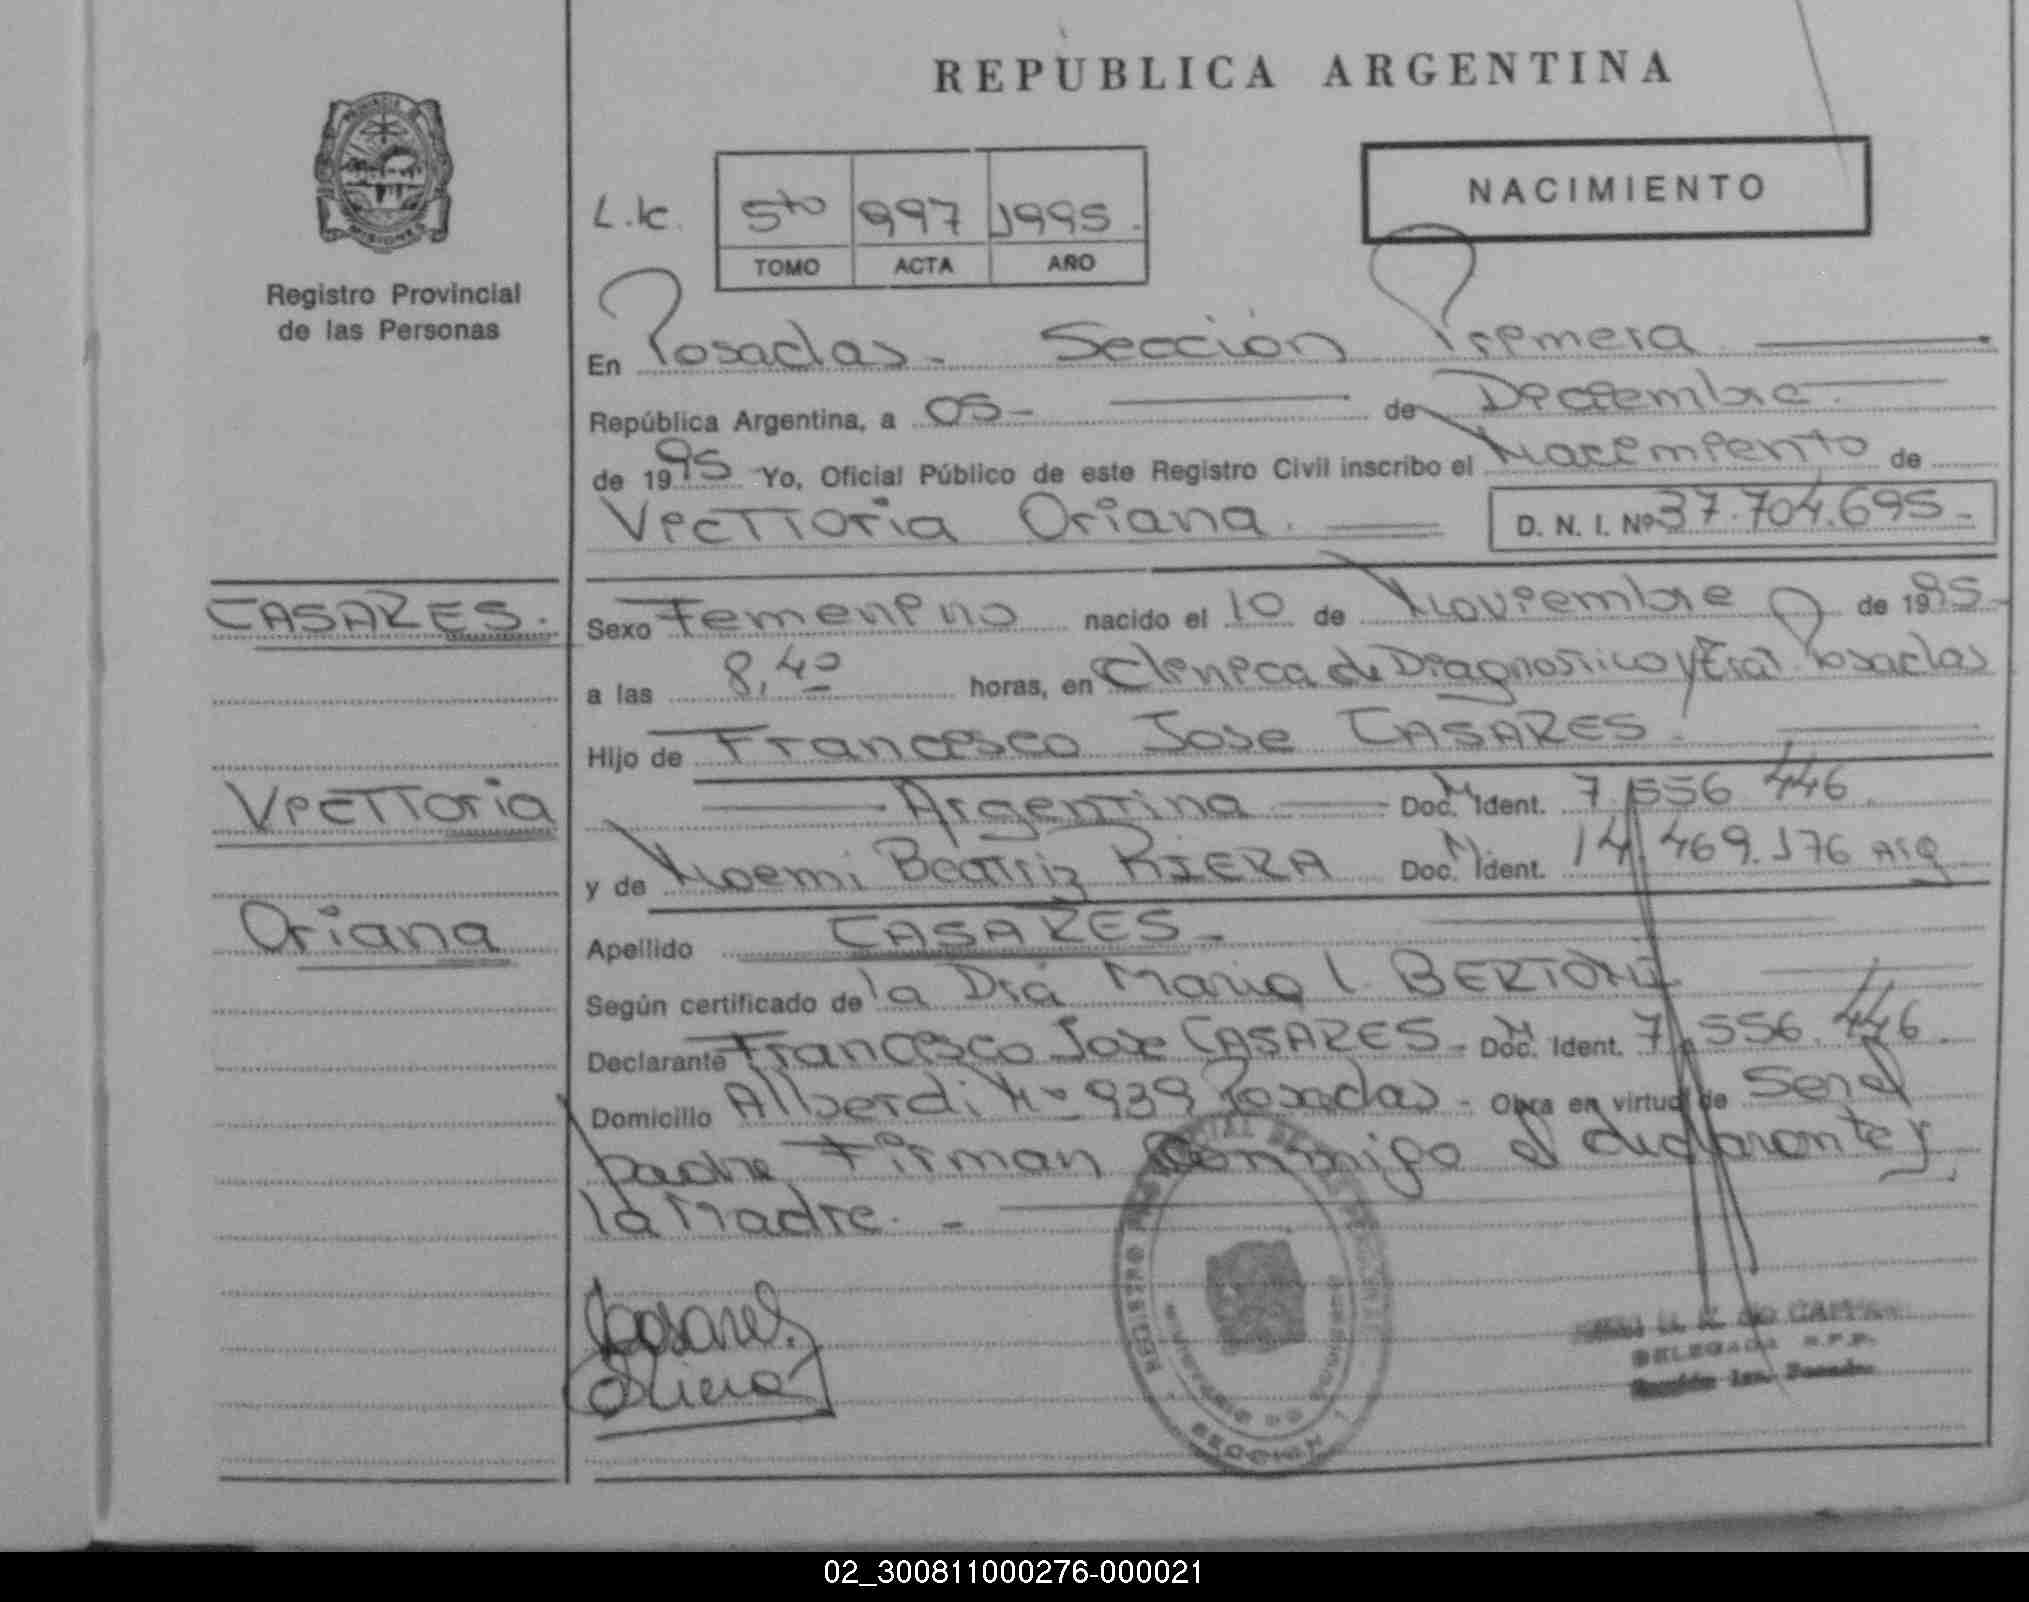 REPUBLICA ARGENTINA
PROVINCIA
MISIONES
Registro Provincial
de las Personas
L.k. 5to 997 1995.
TOMO ACTA AÑO
NACIMIENTO
En Posadas. Sección Primera
República Argentina, a 05 - de Diciembre
de 1995 Yo, Oficial Público de este Registro Civil inscribo el Nacimiento de
Victtoria Oriana. D. N. I. Nº 37.704.695.-
CASARES. Sexo Femenino nacido el 10 de Noviembre de 1995-
a las 8,40 horas, en Clinica de Diagnostico y Trat. Posadas
Hijo de Francisco Jose CASARES.
Victtoria Argentina Doc. M Ident. 7.556 446.
y de Noemi Beatriz RIERA Doc. M Ident. 14.469.176 Arg
Oriana Apellido CASARES -
Según certificado de la Dra Maria L. BERTONI
Declarante Francisco Jose CASARES - Doc. M Ident. 7.556.446.
Domicilio Alberdi Nº 939 Posadas - Obra en virtud de Ser el
padre Firman Conmigo el declarante y
la Madre. -
Casares.
Riera
DELEGADA R.P.P.
Sección 1ra. Posadas
SECCION 1
02_300811000276-000021